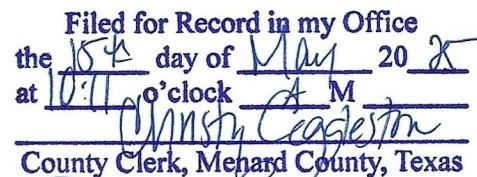 Filed for Record in my Office
the 15th day of May 20 25
at 10:11 o'clock A M
Christy Eggleston
County Clerk, Menard County, Texas